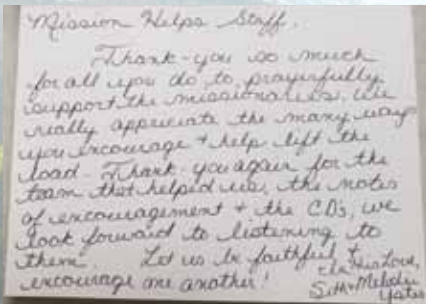 Mission Helps Staff,
Thank-you so much
for all you do to prayerfully
support the missionaries. We
really appreciate the many ways
you encourage + help lift the
load. Thank-you again for the
team that helped us, the notes
of encouragement + the CDs, we
look forward to listening to
them. Let us be faithful +
encourage one another!
In His Love,
Seth + Melody
Yates